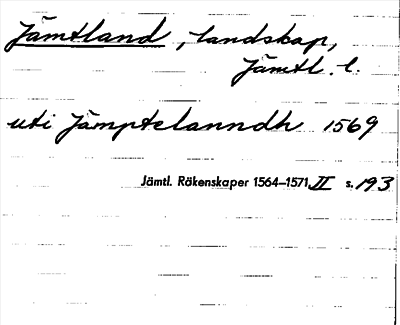 Jämtland, landskap,
Jämtl. l.
uti Jämptelanndh 1569
Jämtl. Räkenskaper 1564–1571, II s. 193